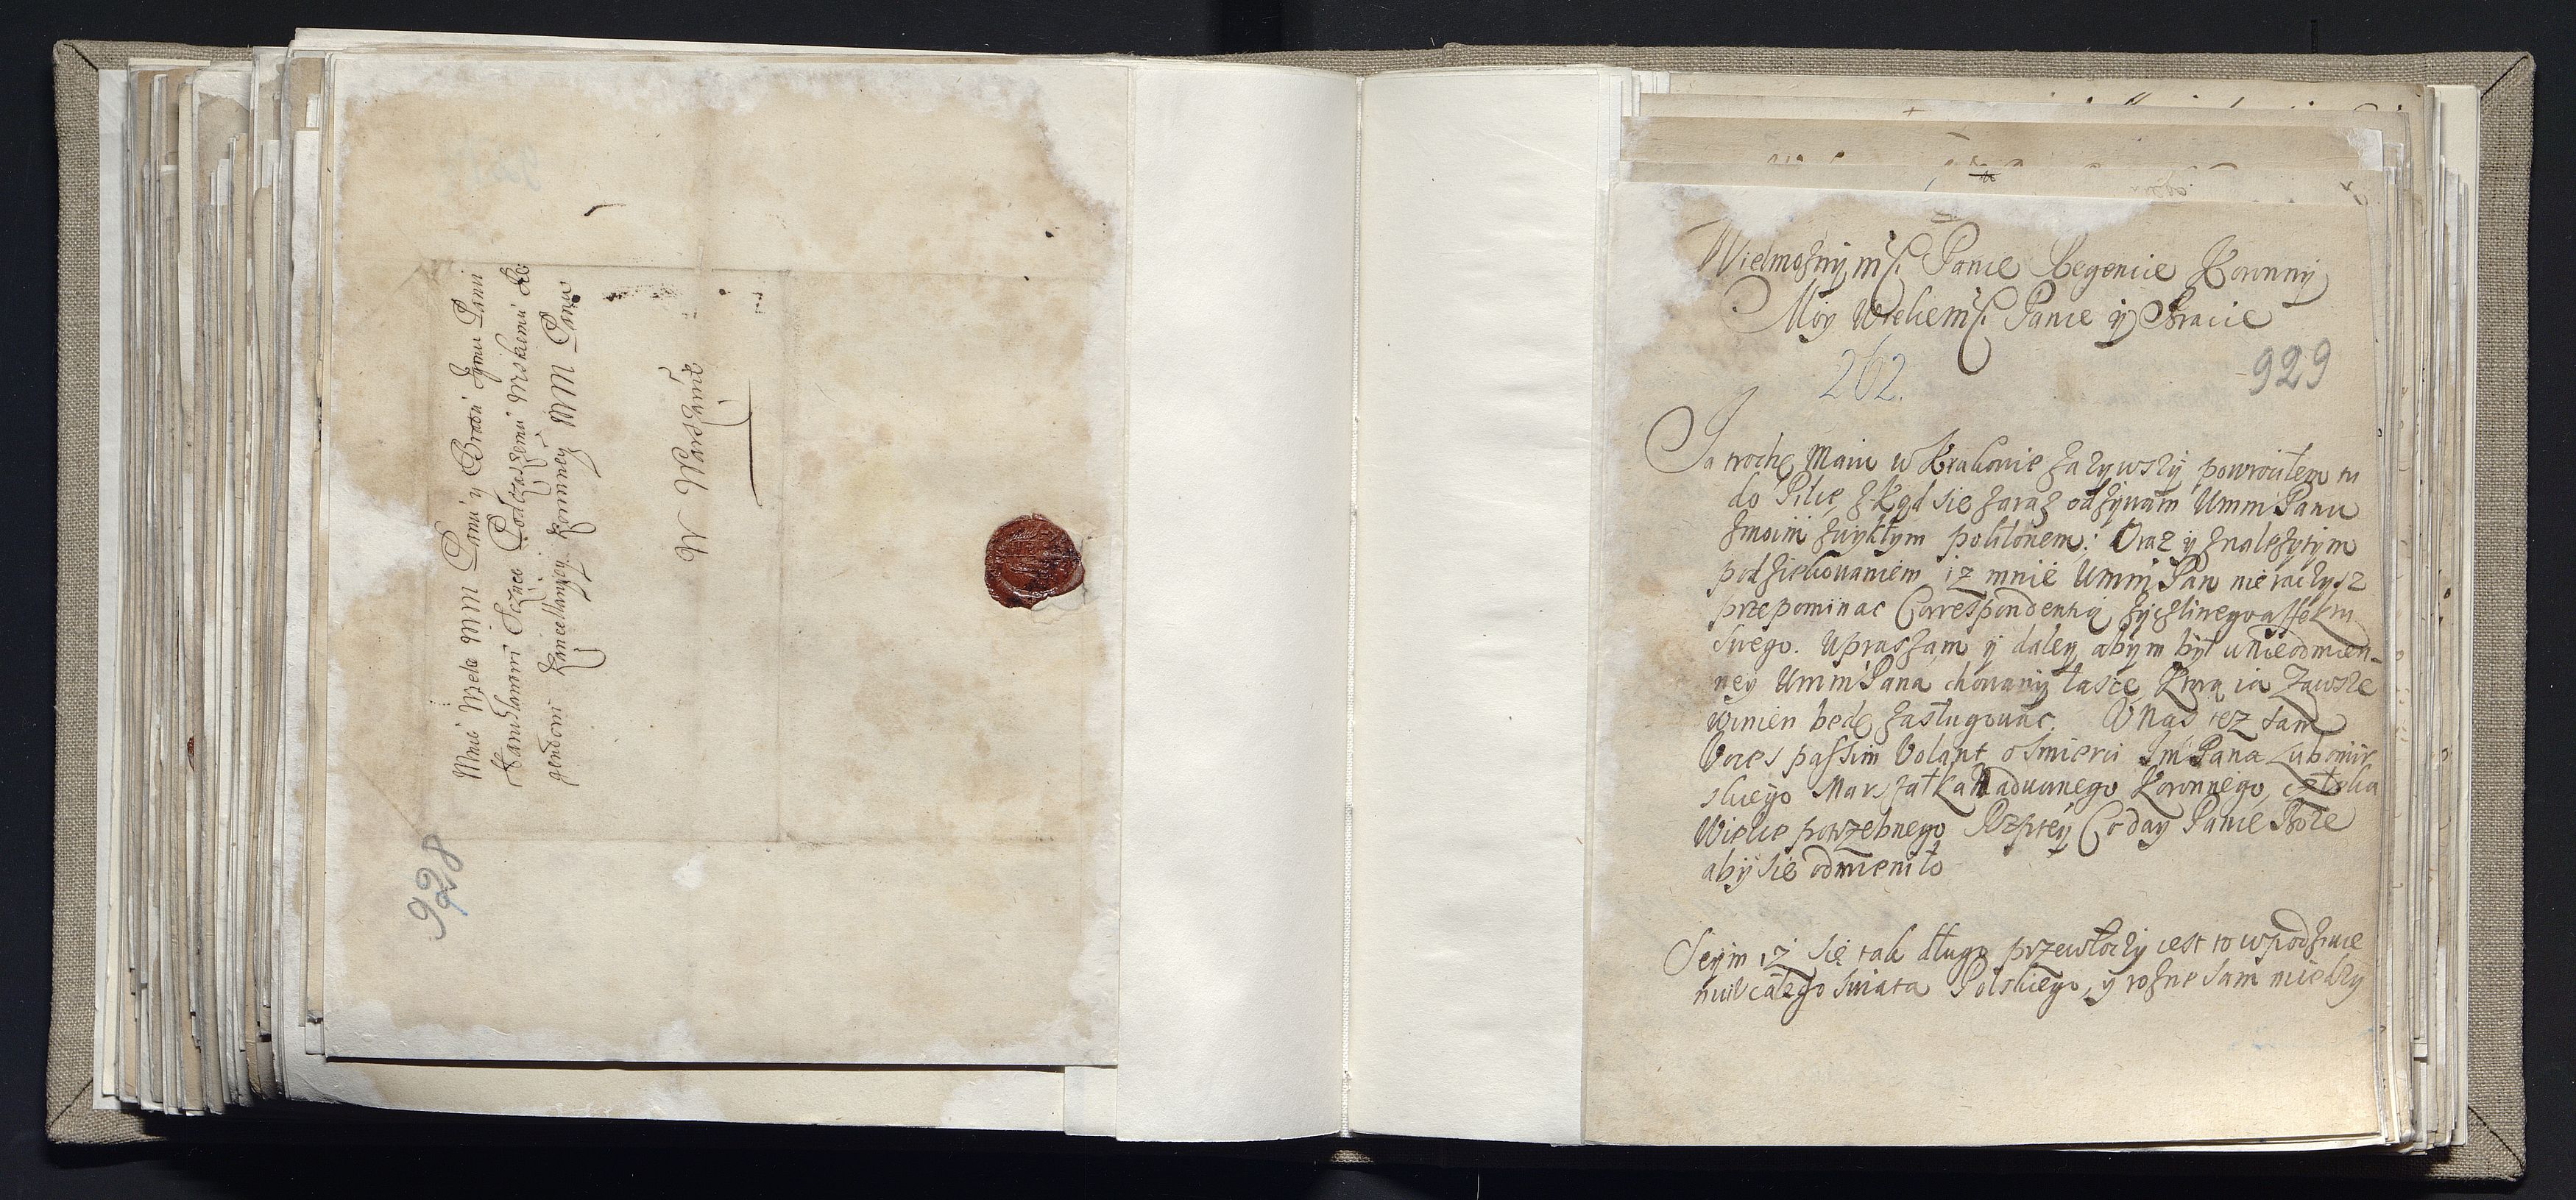 Mnie Wzela MM Panu y Bratu Jgmu Panu
Stanisławowi Sczuce Podczaszemu Wiskiemu Re
gendowi Kancellaryey Koronney MM Panu
W Warszawie
928
Wielmożny mśc. Panie Regencie Koronny
Móy Wielcemśc. Panie y Bracie
262.
929
Ja trochę Maiu w Krakowie zażywszy powrociłem tu
do Pilce, zkąd się zaraz odzywam Umm Panu
zmoim zwykłym pokłonem: Oraz y znależytym
podziekowaniem iz mnie Umm Pan nie raczysz
przepominac Correspondentią życzliwego affektu
swego. Upraszam y daley, abym był w nieodmien-
ney Umm Pana chowany łasce, Ktorą ia Zawsze
winien będę zasługowac. U Nas tez tam
Voces passim Volant o smierci Jm Pana Lubomir
skiego Marszałka Nadwornego Koronnego, człeka
Wielce potrzebnego Rzptey Coday Panie Boze
aby sie odmieniło
Seym iz się tak długo przewłoczy iest to w podziwie
niu całego swiata Polskiego, y rozne sam miedzy